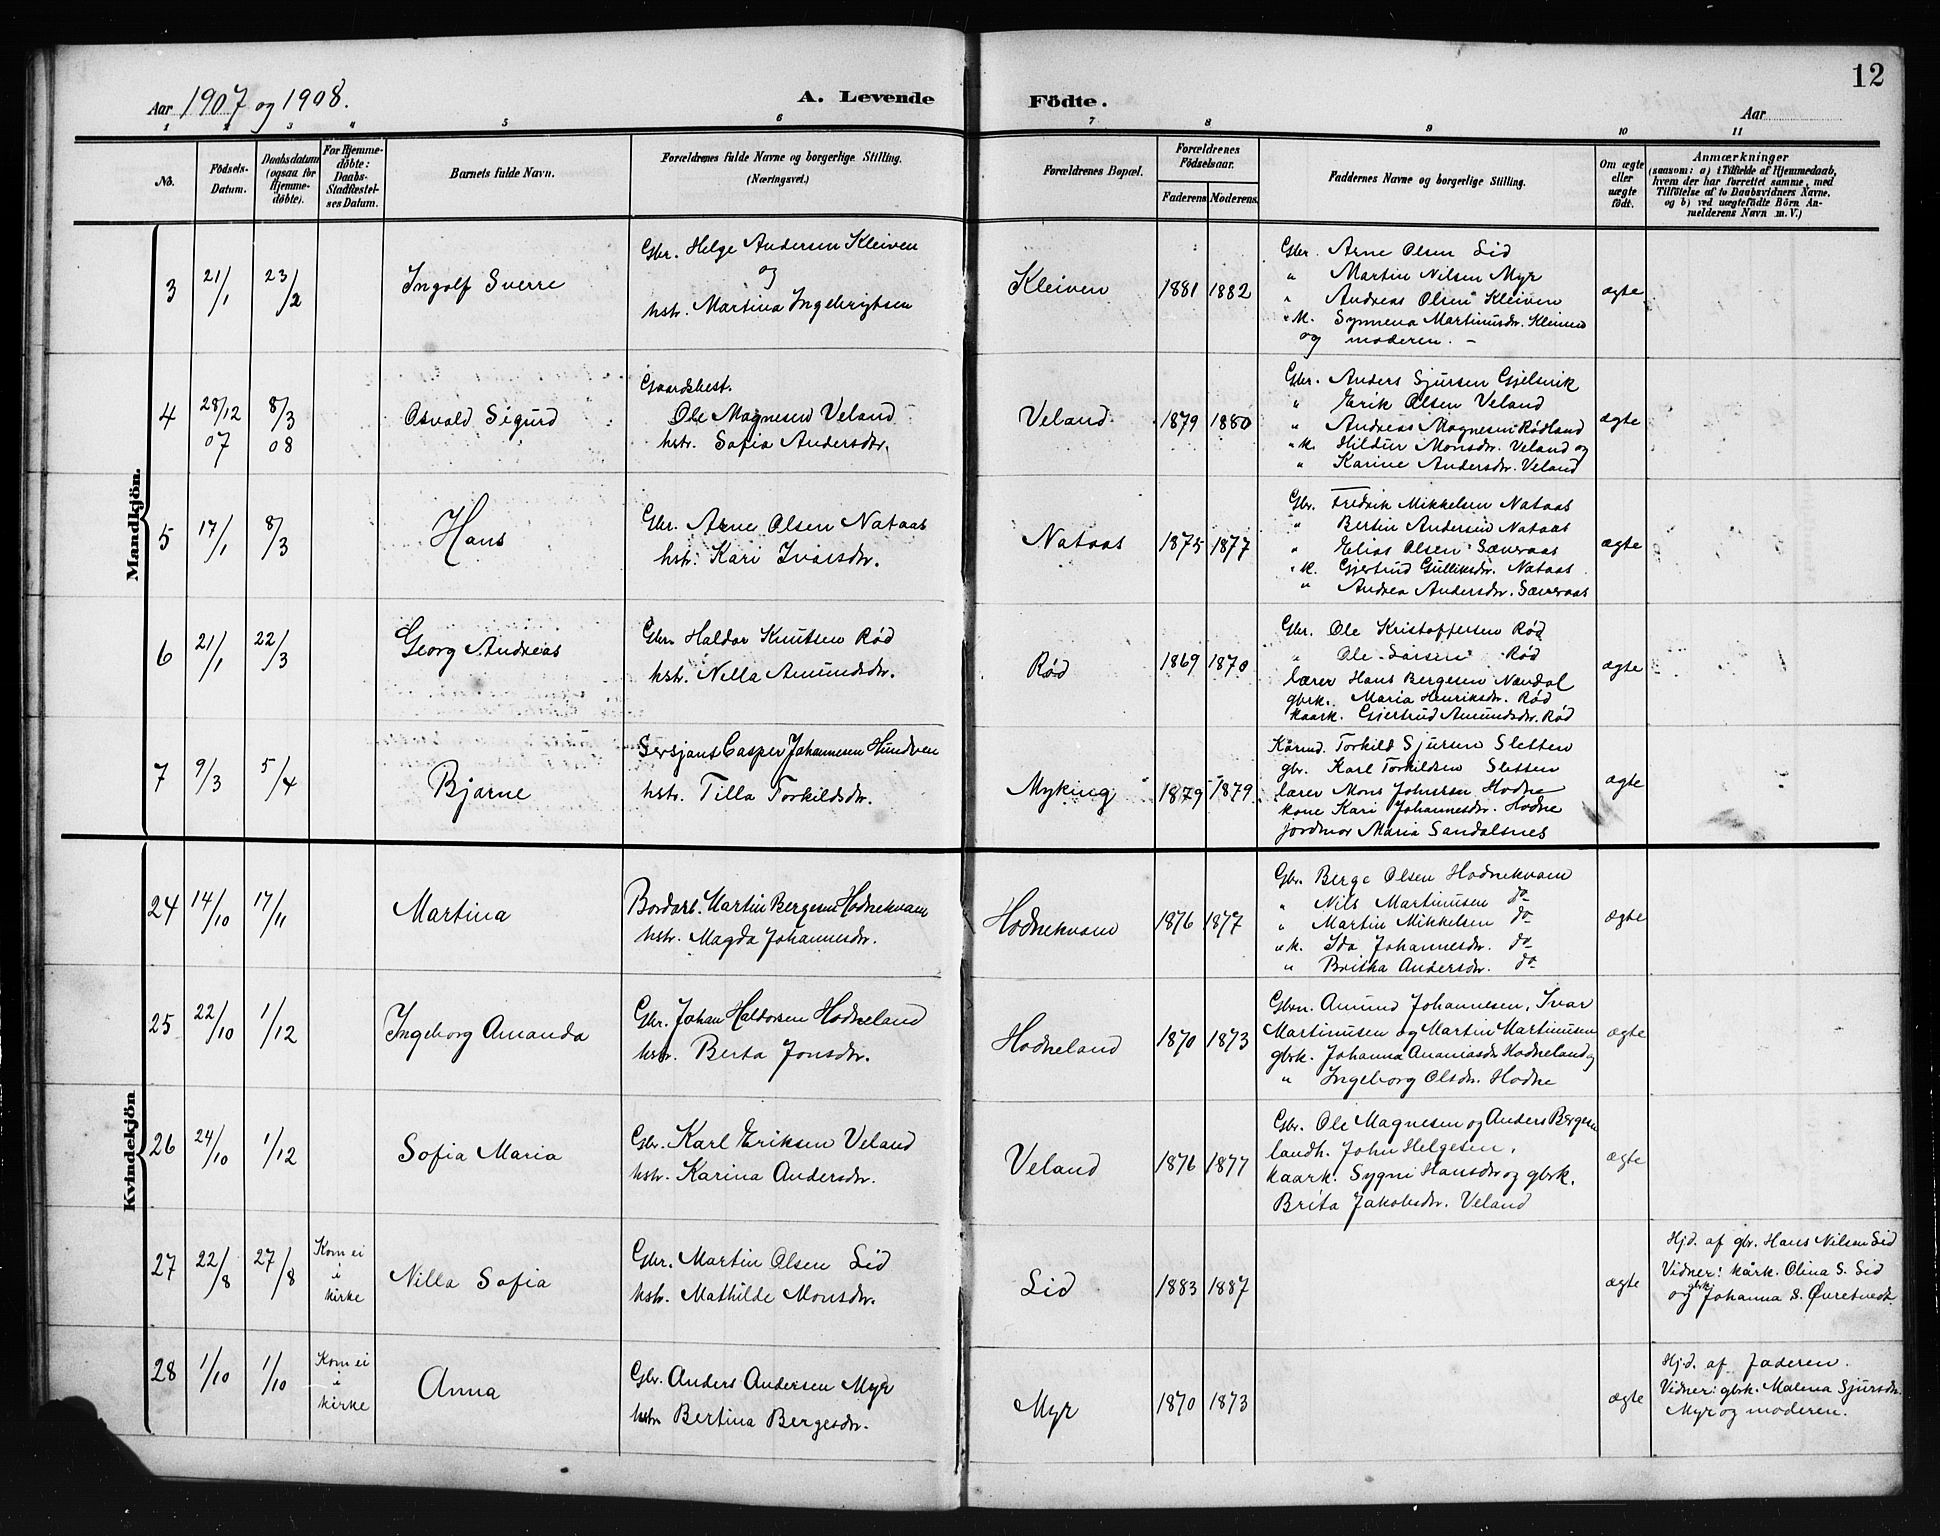 12
Aar 1907 og 1908.
A. Levende Födte.
Aar
1 2 3 4 5 6 7 8 9 10 11
No.
Födsels-Datum.
Daabsdatum (ogsaa for Hjemme-døbte).
For Hjemme-døbte: Daabs-Stadfæstel-ses Datum.
Barnets fulde Navn.
Forældrenes fulde Navne og borgerlige Stilling.
(Næringsvei.)
Forældrenes Bopæl.
Forældrenes Födselsaar.
Faderens. Moderens.
Faddernes Navne og borgerlige Stilling.
Om ægte eller uægte födt.
Anmærkninger
(saasom: a) i Tilfælde af Hjemmedaab,
hvem der har forrettet samme, med
Tilföielse af to Daabsvidners Navne,
og b) ved uægtefödte Börn An-
melderens Navn m. V.)
Mandkjön.
3 21/1 23/2 Ingolf Sverre
Gbr. Helge Andersen Kleiven
og
hstr. Martina Ingebrigtsen
Kleiven 1881 1882
Gbr. Arne Olsen Lid
" Martin Nilsen Myr
" Andreas Olsen Kleiven
" k. Synneva Martinusdr. Kleiven
og moderen. –
ægte
4 28/12 07 8/3 08 Osvald Sigurd
Gaardsbest.
Ole Magnesen Veland
hstr. Sofia Andersdtr.
Veland 1879 1880
Gbr. Anders Sjursen Gjelsvik
" Erik Olsen Veland
" Andreas Magnesen Rødland
" k. Hildur Monsdr. Veland og
" Karine Andersdr. Veland
ægte
5 17/1 8/3 Hans
Gbr. Arne Olsen Nataas
hstr. Kari Ivarsdr.
Nataas 1875 1877
Gbr. Fredrik Mikkelsen Nataas
" Bertin Andersen Nataas
" Elias Olsen Sævraas
" k. Gjertrud Gulliksdr. Nataas
" Andrea Andersdr. Sævraas
ægte
6 21/1 22/3 Georg Andreas
Gbr. Haldor Knutsen Rød
hstr. Nilla Amundsdr.
Rød 1869 1870
Gbr. Ole Kristoffersen Rød
" Ole Larsen Rød
lærer Hans Bergesen Nævdal
gbrk. Maria Henriksdr. Rød
kaark. Gjertrud Amundsdr. Rød
ægte
7 9/3 5/4 Bjarne
Sersjant Casper Johannesen Hundven
hstr. Tilla Torkildsdr.
Myking 1879 1879
Kårmd. Torkild Sjursen Sletten
gbr. Karl Torkildsen Sletten
lærer Mons Johnsen Hodne
kone Kari Johannesdr. Hodne
jordmor Maria Sandalsnes
ægte
Kvindekjön
24 14/10 17/11 Martina
Bordarb. Martin Bergesen Hodnekvam
hstr. Magda Johannesdr.
Hodnekvam 1876 1877
Gbr. Berge Olsen Hodnekvam
" Nils Martinusen do
" Martin Mikkelsen do
" k. Ida Johannesdr. do
" Britha Andersdr. do
ægte
25 22/10 1/12 Ingeborg Amanda
Gbr. Johan Haldorsen Hodneland
hstr. Berta Jonsdr.
Hodneland 1870 1873
Gbrn. Amund Johannesen, Ivar
Martinusen og Martin Martinusen
gbrk. Johanna Ananiasdr Hodneland og
" Ingeborg Olsdr. Hodne
ægte
26 24/10 1/12 Sofia Maria
Gbr. Karl Eriksen Veland
hstr. Karina Andersdr.
Veland 1876 1877
Gbr. Ole Magnesen og Anders Bergesen
landh. John Helgesen,
kaark. Sygni Hansdr og gbrk.
Brita Jakobsdr. Veland
ægte
27 22/8 27/8 Kom ei i kirke Nilla Sofia
Gbr. Martin Olsen Lid
hstr. Mathilde Monsdr.
Lid 1883 1887
ægte
Hjd. af gbr. Hans Nilsen Lid
Vidner: kårk. Olina S. Lid
og gbrk. Johanna S. Øvretvedt.
28 1/10 1/10 Kom ei i kirke Anna
Gbr. Anders Andersen Myr
hstr. Bertina Bergesdr.
Myr 1870 1873
ægte
Hjd. af faderen.
Vidner: gbrk. Malena Sjursdr.
Myr og moderen.